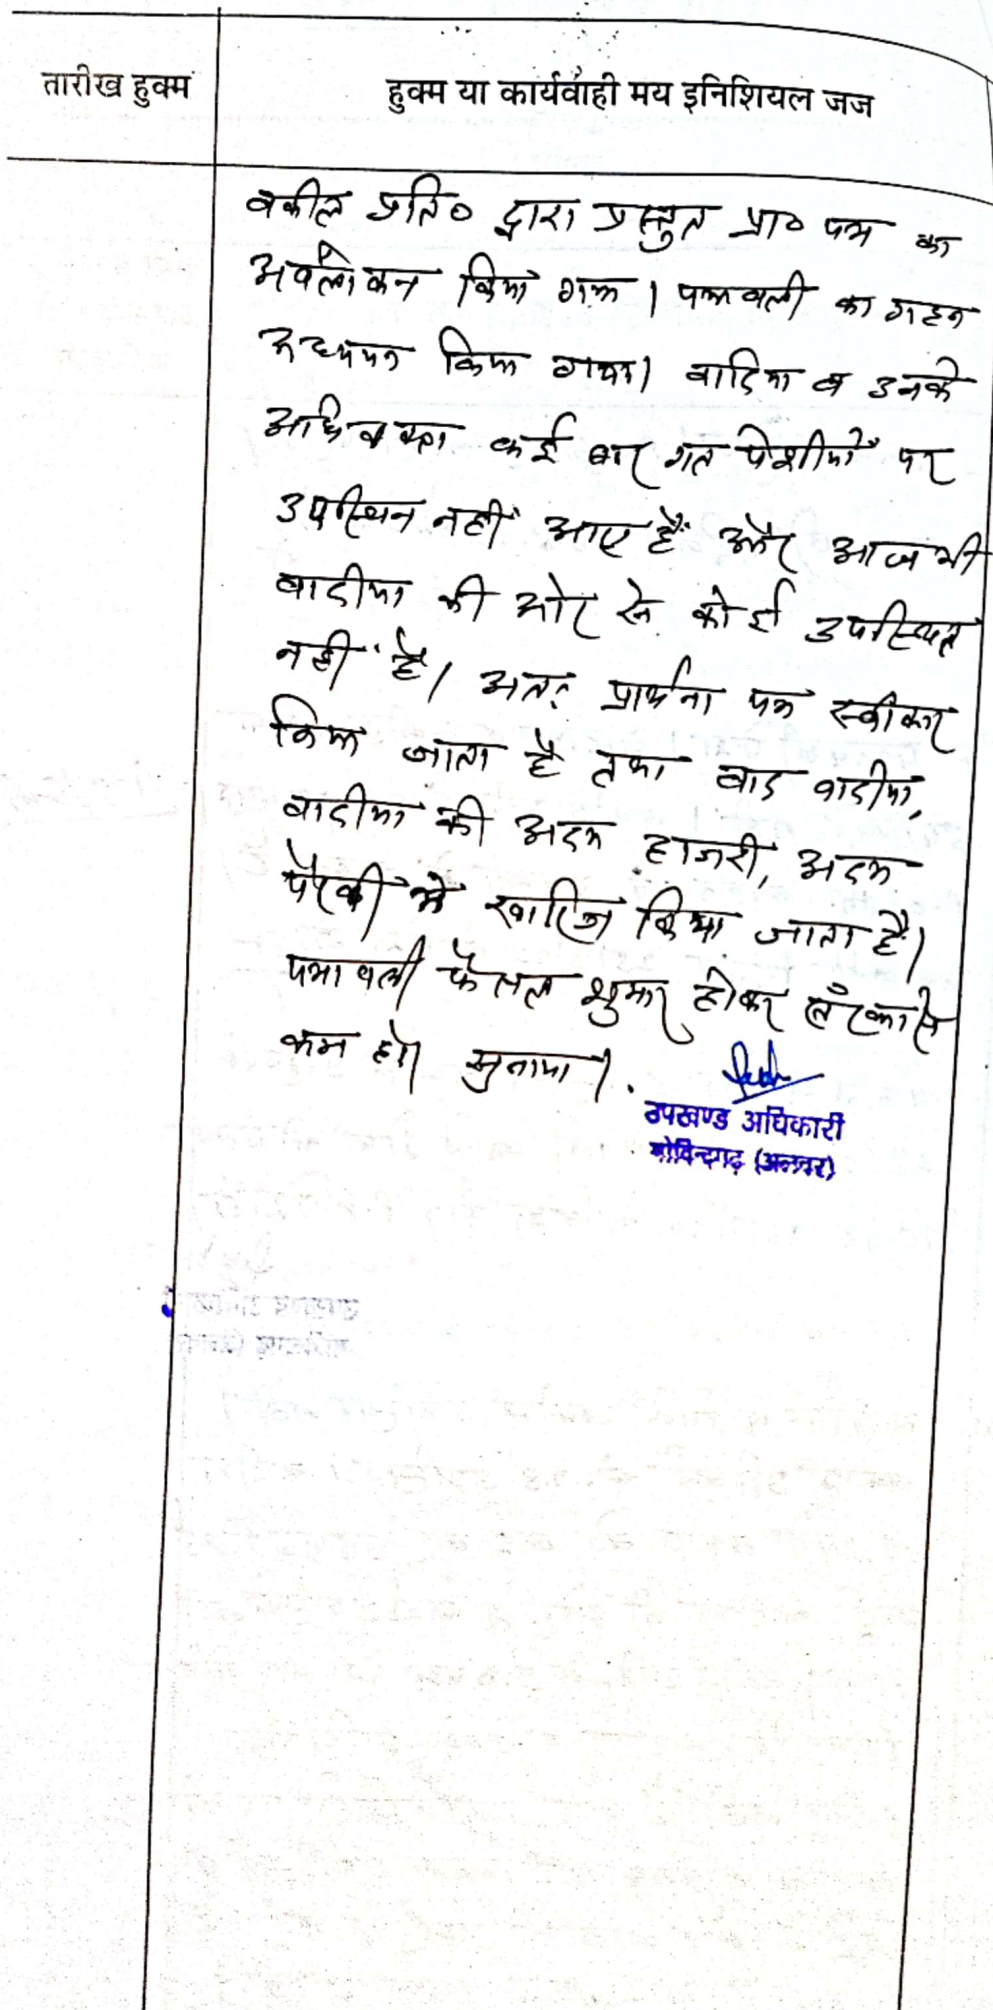 तारीख हुक्म
हुक्म या कार्यवाही मय इनिशियल जज
वकील प्रति० द्वारा प्रस्तुत प्रा० पत्र का
अवलोकन किया गया। पत्रावली का गहन
अध्ययन किया गया। वादिया व उनके
अधिवक्ता कई बार गत पेशीयों पर
उपस्थित नहीं आए हैं और आज भी
वादीया की ओर से कोई उपस्थित
नहीं है। अतः प्रार्थना पत्र स्वीकार
किया जाता है तथा वाद वादीया,
वादीया की अदम हाजरी, अदम
पैरवी में खारिज किया जाता है।
पत्रावली फैसल शुमार होकर से
कम हो। सुनाया।
उपखण्ड अधिकारी
गोविन्दगढ़ (अलवर)